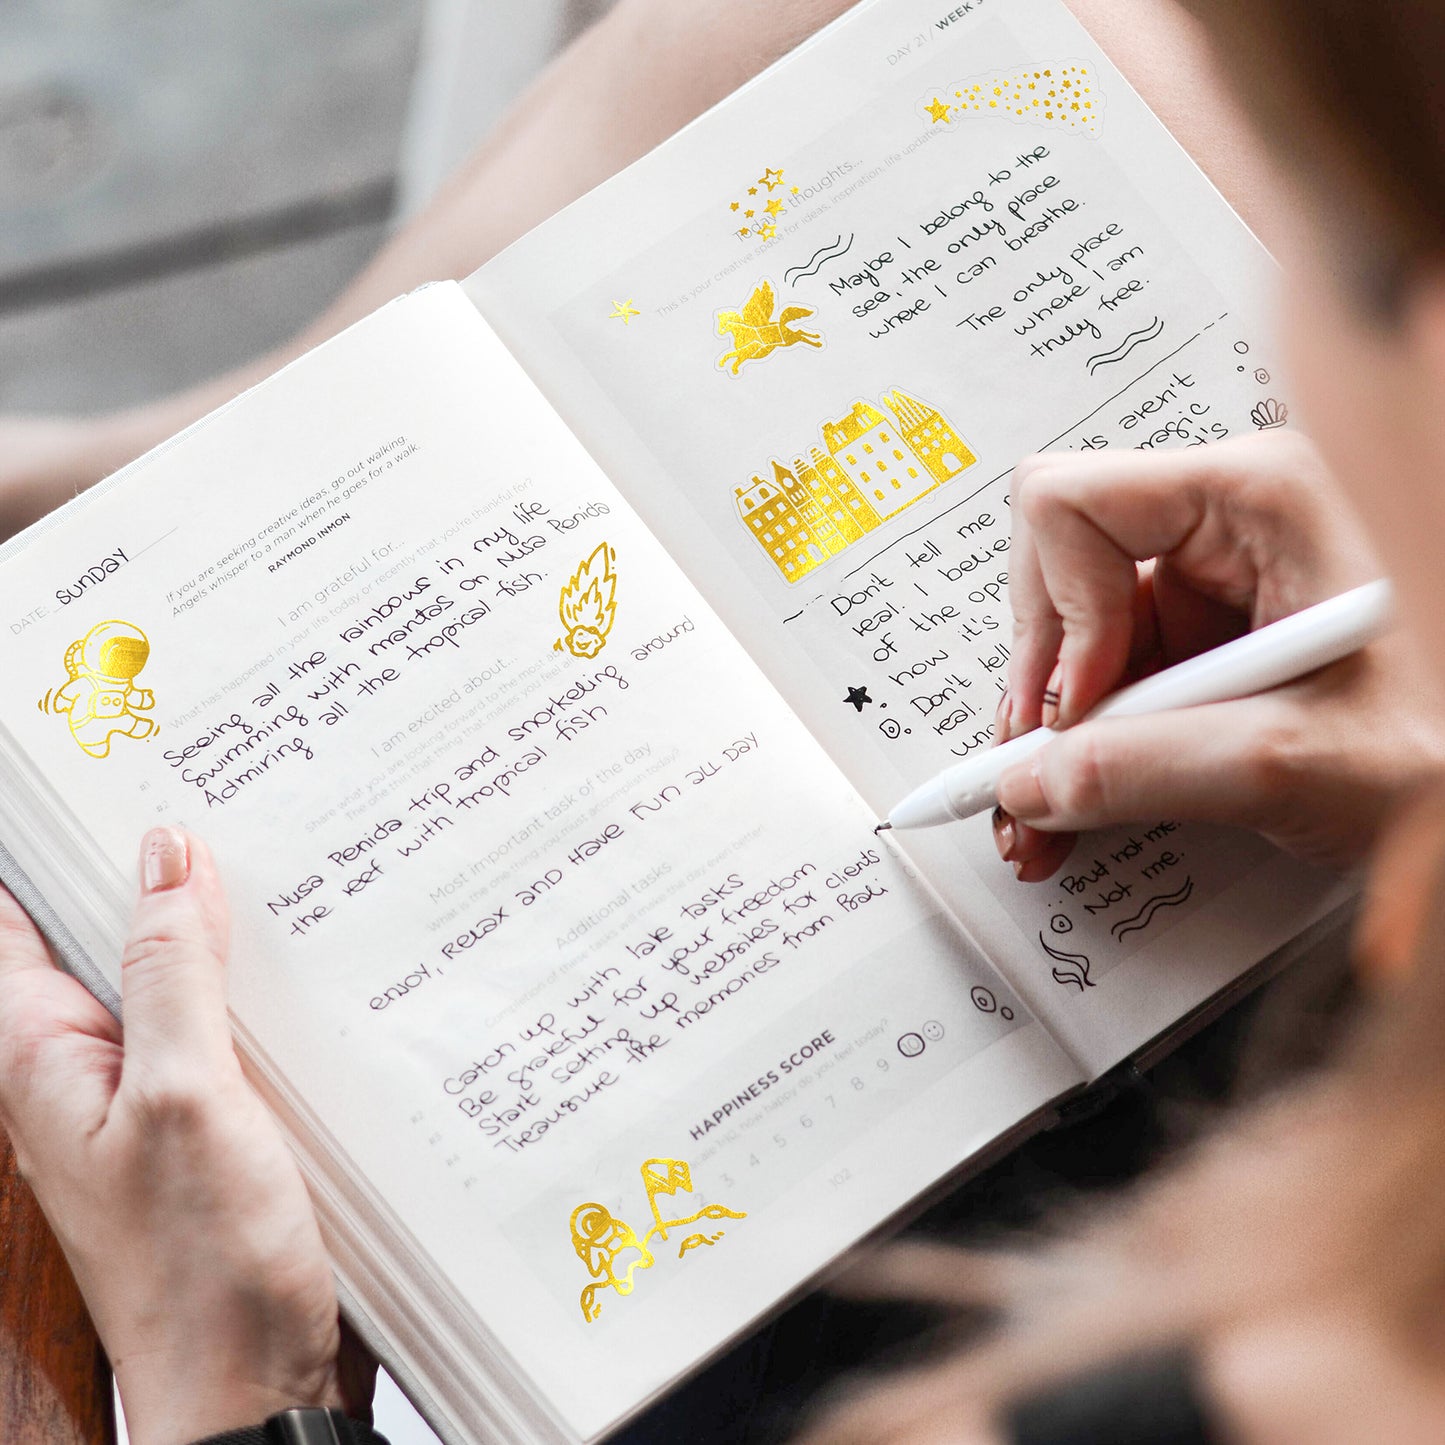 DATE: SUNDAY
If you are seeking creative ideas, go out walking.
Angels whisper to a man when he goes for a walk.
RAYMOND INMON
I am grateful for...
What has happened in your life today or recently that you're thankful for?
#1 Seeing all the rainbows in my life
#2 Swimming with mantas on Nusa Penida
Admiring all the tropical fish.
I am excited about...
Share what you are looking forward to the most
The one thing that makes you feel
Nusa Penida trip and snorkeling around
the reef with tropical fish
Most important task of the day
What is the one thing you must accomplish today?
#1 enjoy, RELAX AND HAVE FUN ALL DAY
Additional tasks
Completion of these tasks will make the day even better!
#2 Catch up with late tasks
#3 Be grateful for your freedom
#4 Start setting up websites for clients
#5 Treausure the memories from Bali
HAPPINESS SCORE
scale 1-10, how happy do you feel today?
1 2 3 4 5 6 7 8 9 10
102
DAY 21 / WEEK
Today's thoughts...
This is your creative space for ideas, inspiration, life updates
Maybe I belong to the
sea, the only place
where I can breathe.
The only place
where I am
truly free.
aren't
Don't tell me
real. I
of the
how it's
Don't
real.
But not me.
Not me.